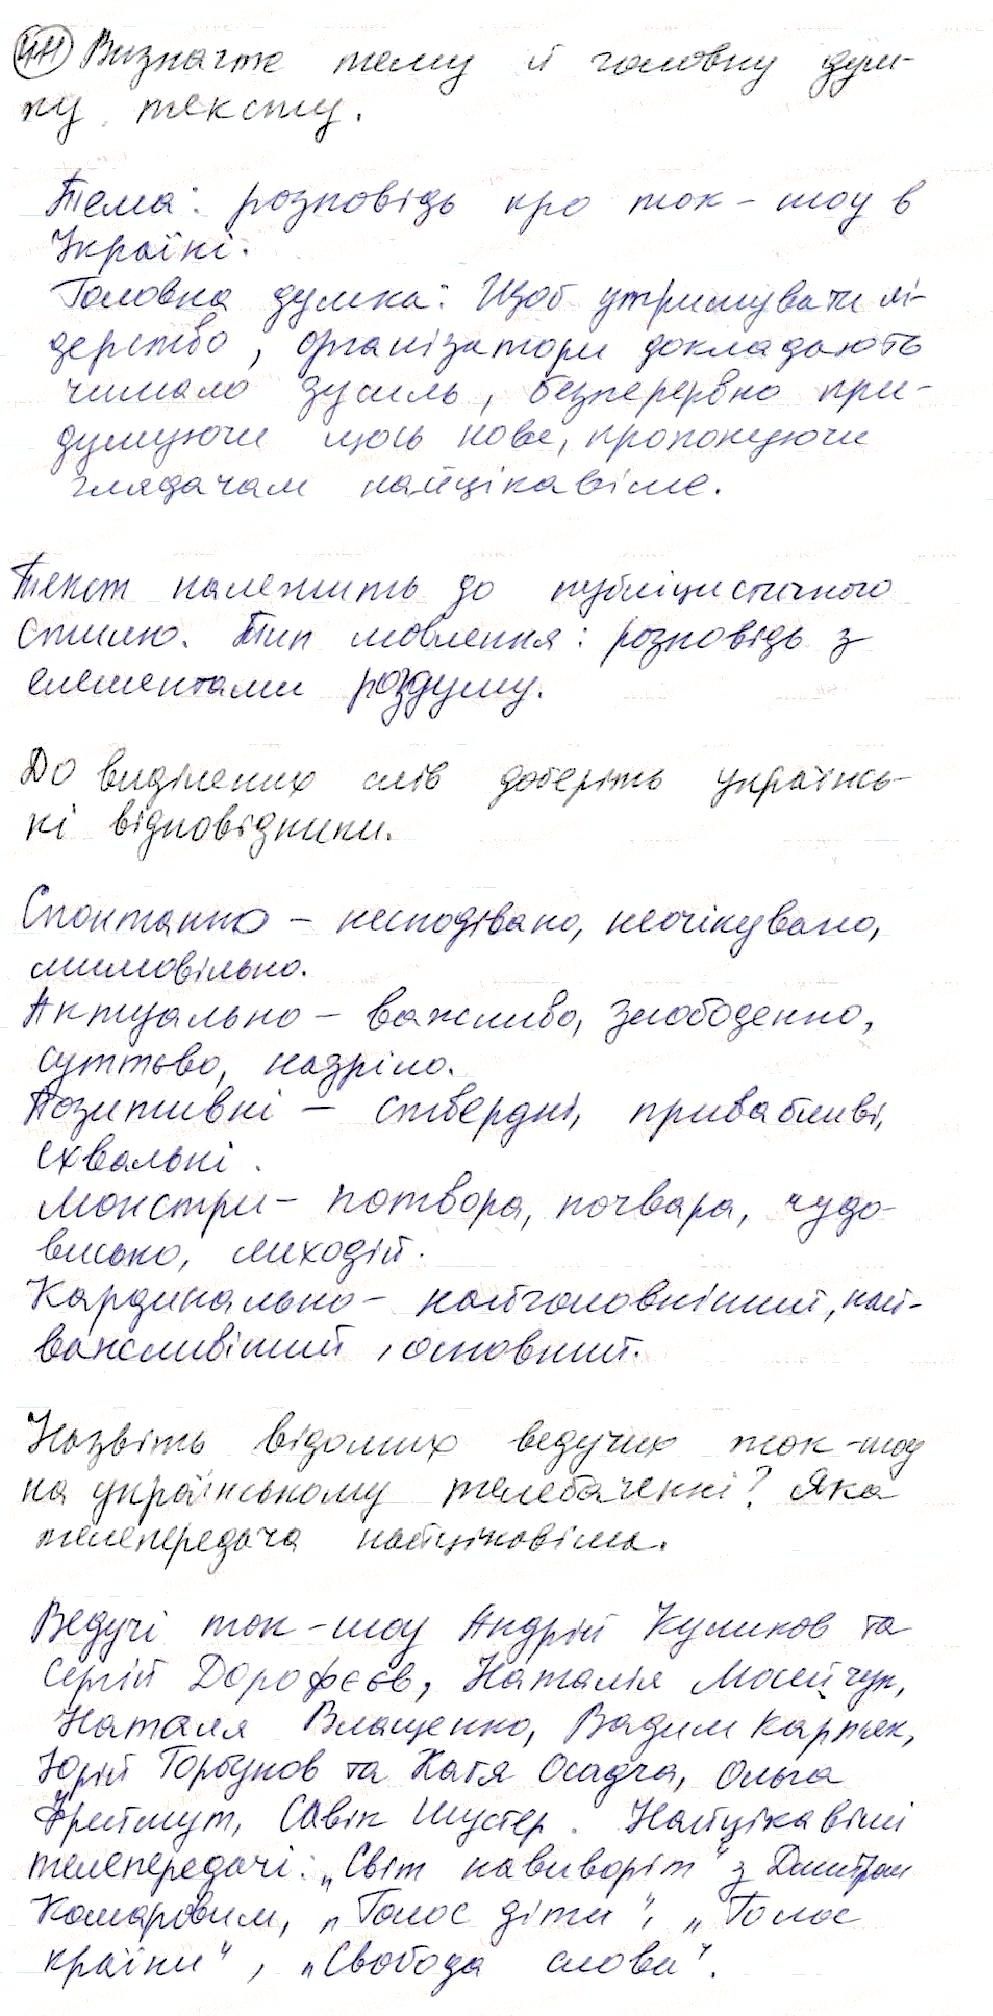 411 Визначте тему й головну дум-
ку тексту.
Тема: розповідь про ток-шоу в
Україні.
Головна думка: Щоб утримувати лі-
дерство, організатори докладають
чимало зусиль, безперервно при-
думуючи щось нове, пропонуючи
глядачам найцікавіше.
Текст належить до публіцистичного
стилю. Тип мовлення: розповідь з
елементами роздуму.
До виділених слів доберіть українсь-
кі відповідники.
Спонтанно – несподівано, неочікувано,
мимовільно.
Актуально – важливо, злободенно,
суттєво, назріло.
Позитивні – ствердні, привабливі,
схвальні.
Монстри – потвора, почвара, чудо-
висько, лиходій.
Кардинально – найголовніший, най-
важливіший, основний.
Назвіть відомих ведучих ток-шоу
на українському телебаченні? Яка
телепередача найцікавіша.
Ведучі ток-шоу Андрій Куликов та
Сергій Дорофєєв, Наталія Мосейчук,
Наталя Влащенко, Вадим Карп'як,
Юрій Горбунов та Катя Осадча, Ольга
Фреймут, Савік Шустер. Найцікавіші
телепередачі: „Світ навиворіт" з Дмитром
Комаровим, „Голос діти", „Голос
країни", „Свобода слова".